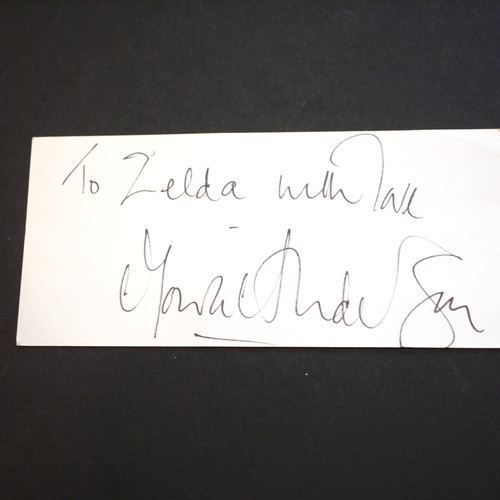 To Zelda with love
Moira Anderson